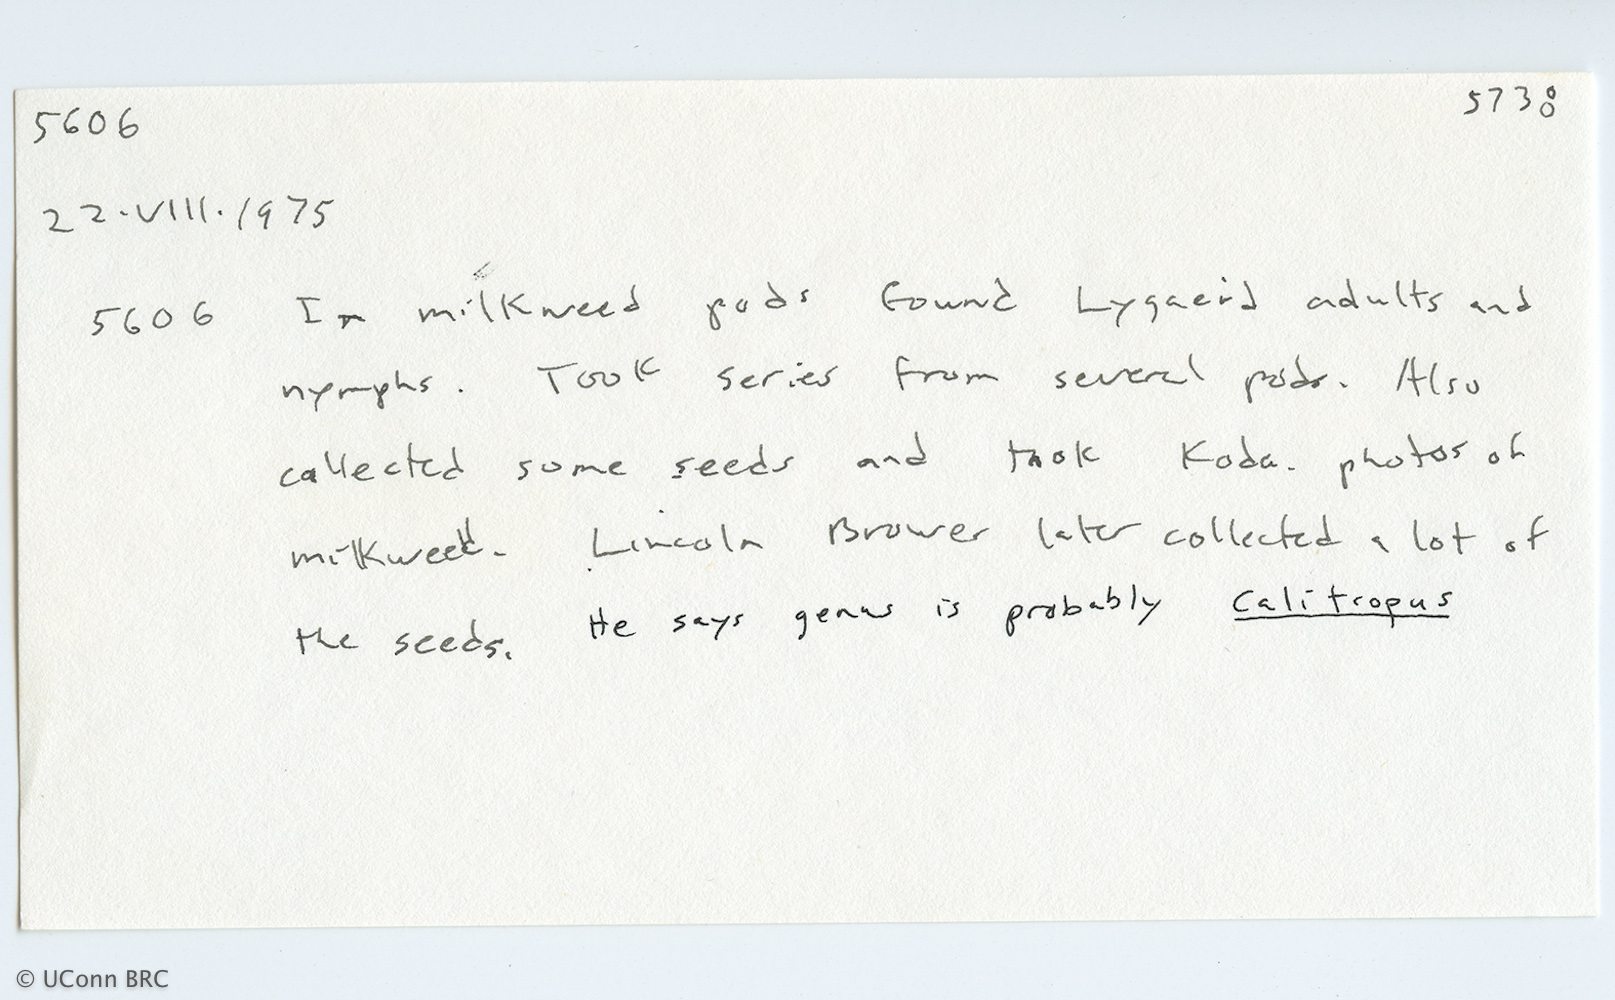 5606 5738
22.VIII.1975
5606 In milkweed pods found Lygaeid adults and
nymphs. Took series from several pods. Also
collected some seeds and took Koda. photos of
milkweed. Lincoln Brower later collected a lot of
the seeds. He says genus is probably Calitropus
© UConn BRC